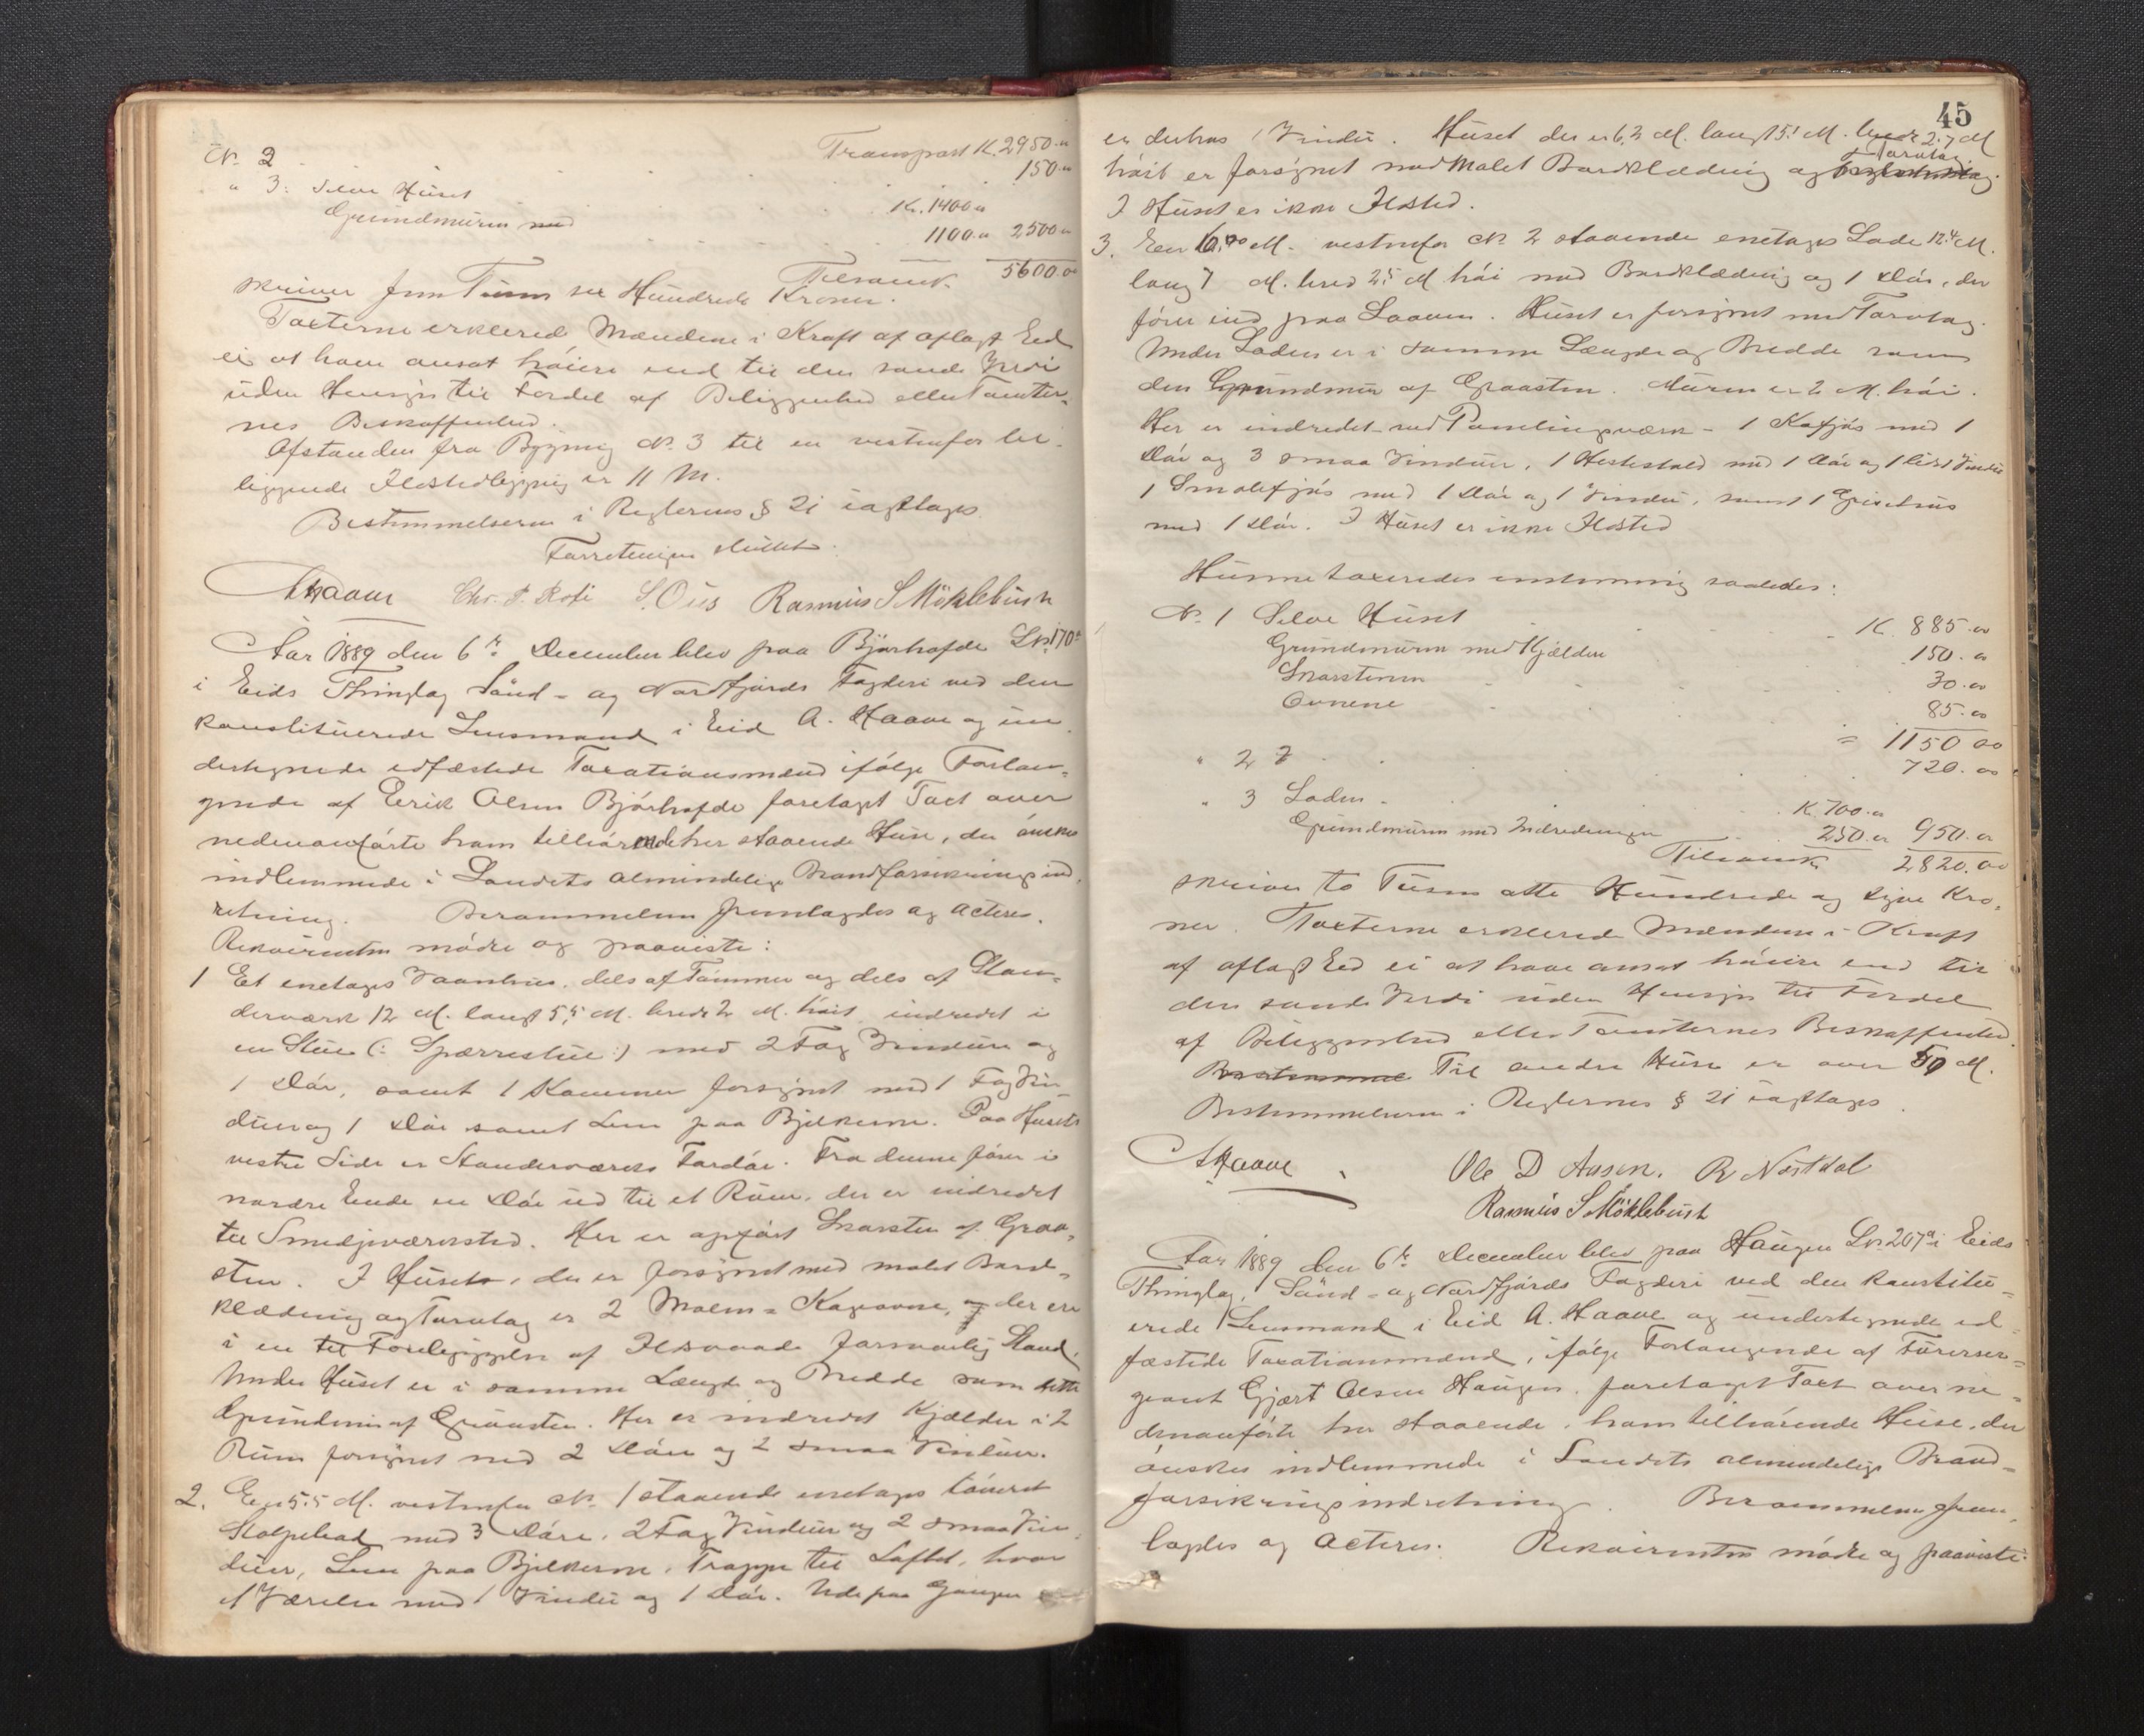 Transport K. 2950.„
No. 2 . . . 150.„
„ 3: Selve Huset . . . K. 1400„
Grundmuren med . . . 1100.„ 2500„
Tilsamm. 5600.00
skriver fem Tusen sex Hundrede Kroner.
Taxterne erklæred Mændene i Kraft af aflagt Eed
ei at have ansat høiere end til den sande Værdi
uden Hensyn til Fordel af Beliggenhed eller Tomter-
nes Beskaffenhed.
Afstanden fra Bygning No. 3 til en vestenfor be-
liggende Ildstedbygning er 11 M.
Bestemmelserne i Reglernes § 21 iagttages
Forretningen sluttet.
AHaave Chr. P. Roti S. Ous Rasmus S Möklebust
Aar 1889 den 6te December blev paa Bjørhofde Lno. 170a
i Eids Thinglag Sönd- og Nordfjords Fogderi ved den
konstituerede Lensmand i Eid A. Haave og un-
dertegnede edfæstede Taxationsmænd ifølge Forlan-
gende af Eerik Olsen Bjørhofde foretaget Taxt over
nedenanførte ham tilhørende her staaende Huse, der ønskes
indlemmede i Landets almindelige Brandforsikringsind-
retning. Berammelsen fremlagdes og acteres.
Rekvirenten mødte og paaviste:
1 Et enetages Vaanhus, dels af Tømmer og dels af Stan-
derværk 12 M. langt 5,5 M. bredt 2 M. høit indredet i
en Stue (: Spærrestue:) med 2 Fag Vinduer og
1 Dør, samt 1 Kammer forsynet med 1 Fag Vin-
duer og 1 Dør samt Lem paa Bjelkerne. Paa Husets
vestre Side er Standerværks Fordør. Fra denne fører i
nordre Eende en Dør ud til et Rum, der er indredet
til Smedjeværksted. Her er opført Skorsten af Graa-
sten. I Huset, der er forsynet med malet Bord-
klædning og Torvtag er 2 Malm-Kogeovne, der ere
i en til Forebyggelse af Ildsvaade forsvarlig Stand.
Under Huset er i samme Længde og Bredde som dette
Grundmur af Graasten. Her er indredet Kjælder i 2
Rum forsynet med 2 Døre og 2 smaa Vinduer.
2. En 5.5 M. vestenfor No. 1 staaende enetages tømret
Stolpebod med 3 Døre, 2 Fag Vinduer og 2 smaa Vin-
duer, Lem paa Bjelkerne, Trappe til Loftet, hvor
1 Værelse med 1 Vindue og 1 Dør. Ude paa Gangen
45
er desuden 1 Vindue. Huset der er 6,3 M. langt 5.1 M. bredt 2.7 M
høit er forsynet med Malet Bordklædning og Torvtag.
I Huset er ikke Ildsted.
3. En 6,70 M. vestenfor No. 2 staaende enetages Lade 12.4 M.
lang 7 M. bred 2,5 M høi med Bordklædning og 1 Dør, der
fører ind paa Laaven. Huset er forsynet med Torvtag.
Under Laden er i samme Længde og Bredde som
den Grundmur af Graasten. Muren er 2 M. høi.
Her er indredet ved Panelingsværk - 1 Kofjøs med 1
Dør og 3 smaa Vinduer, 1 Hestestald med 1 Dør og 1 lidet Vindue
1 Smalefjøs med 1 Dør og 1 Vindue, samt 1 Grisehus
med 1 Dør. I Huset er ikke Ildsted
Husene taxeredes enstemmig saaledes:
No. 1 Selve Huset . . . K. 885.00
Grundmuren med Kjælder . . . 150.00
Skorstenen . . . 30.00
Ovnene . . . 85.00
= 1150 00
„ 2 . . . 720.00
„ 3 Laden . . . K. 700.„
Grundmuren med Indredningen . . . 250.00 950.00
Tilsammen 2820.00
skriver to Tusen otte Hundrede og tyve Kro-
ner. Taxterne erklærede Mændene i Kraft
af aflagt Eed ei at have ansat høiere end til
den sande Verdi uden Hensyn til Fordel
af Beliggenhed eller Tomternes Beskaffenhed.
Til andre Huse er over 50 M.
Bestemmelserne i Reglernes § 21 iagttages.
AHaave Ole D Aasen. R Nøstdal
Rasmus S Möklebust
Aar 1889 den 6te December blev paa Haugen Lno. 207a i Eids
Thinglag, Sönd- og Nordfjords Fogderi ved den konstitu-
erede Lensmand i Eid A. Haave og undertegnede ed-
fæstede Taxationsmænd, ifølge Forlangende af Furerser-
geant Gjært Olsen Haugen foretaget Taxt over ne-
denanførte her staaende, ham tilhørende Huse, der
ønskes indlemmede i Landets almindelige Brand-
forsikringsindretning. Berammelsen frem-
lagdes og acteres. Rekvirenten mødte og paaviste: